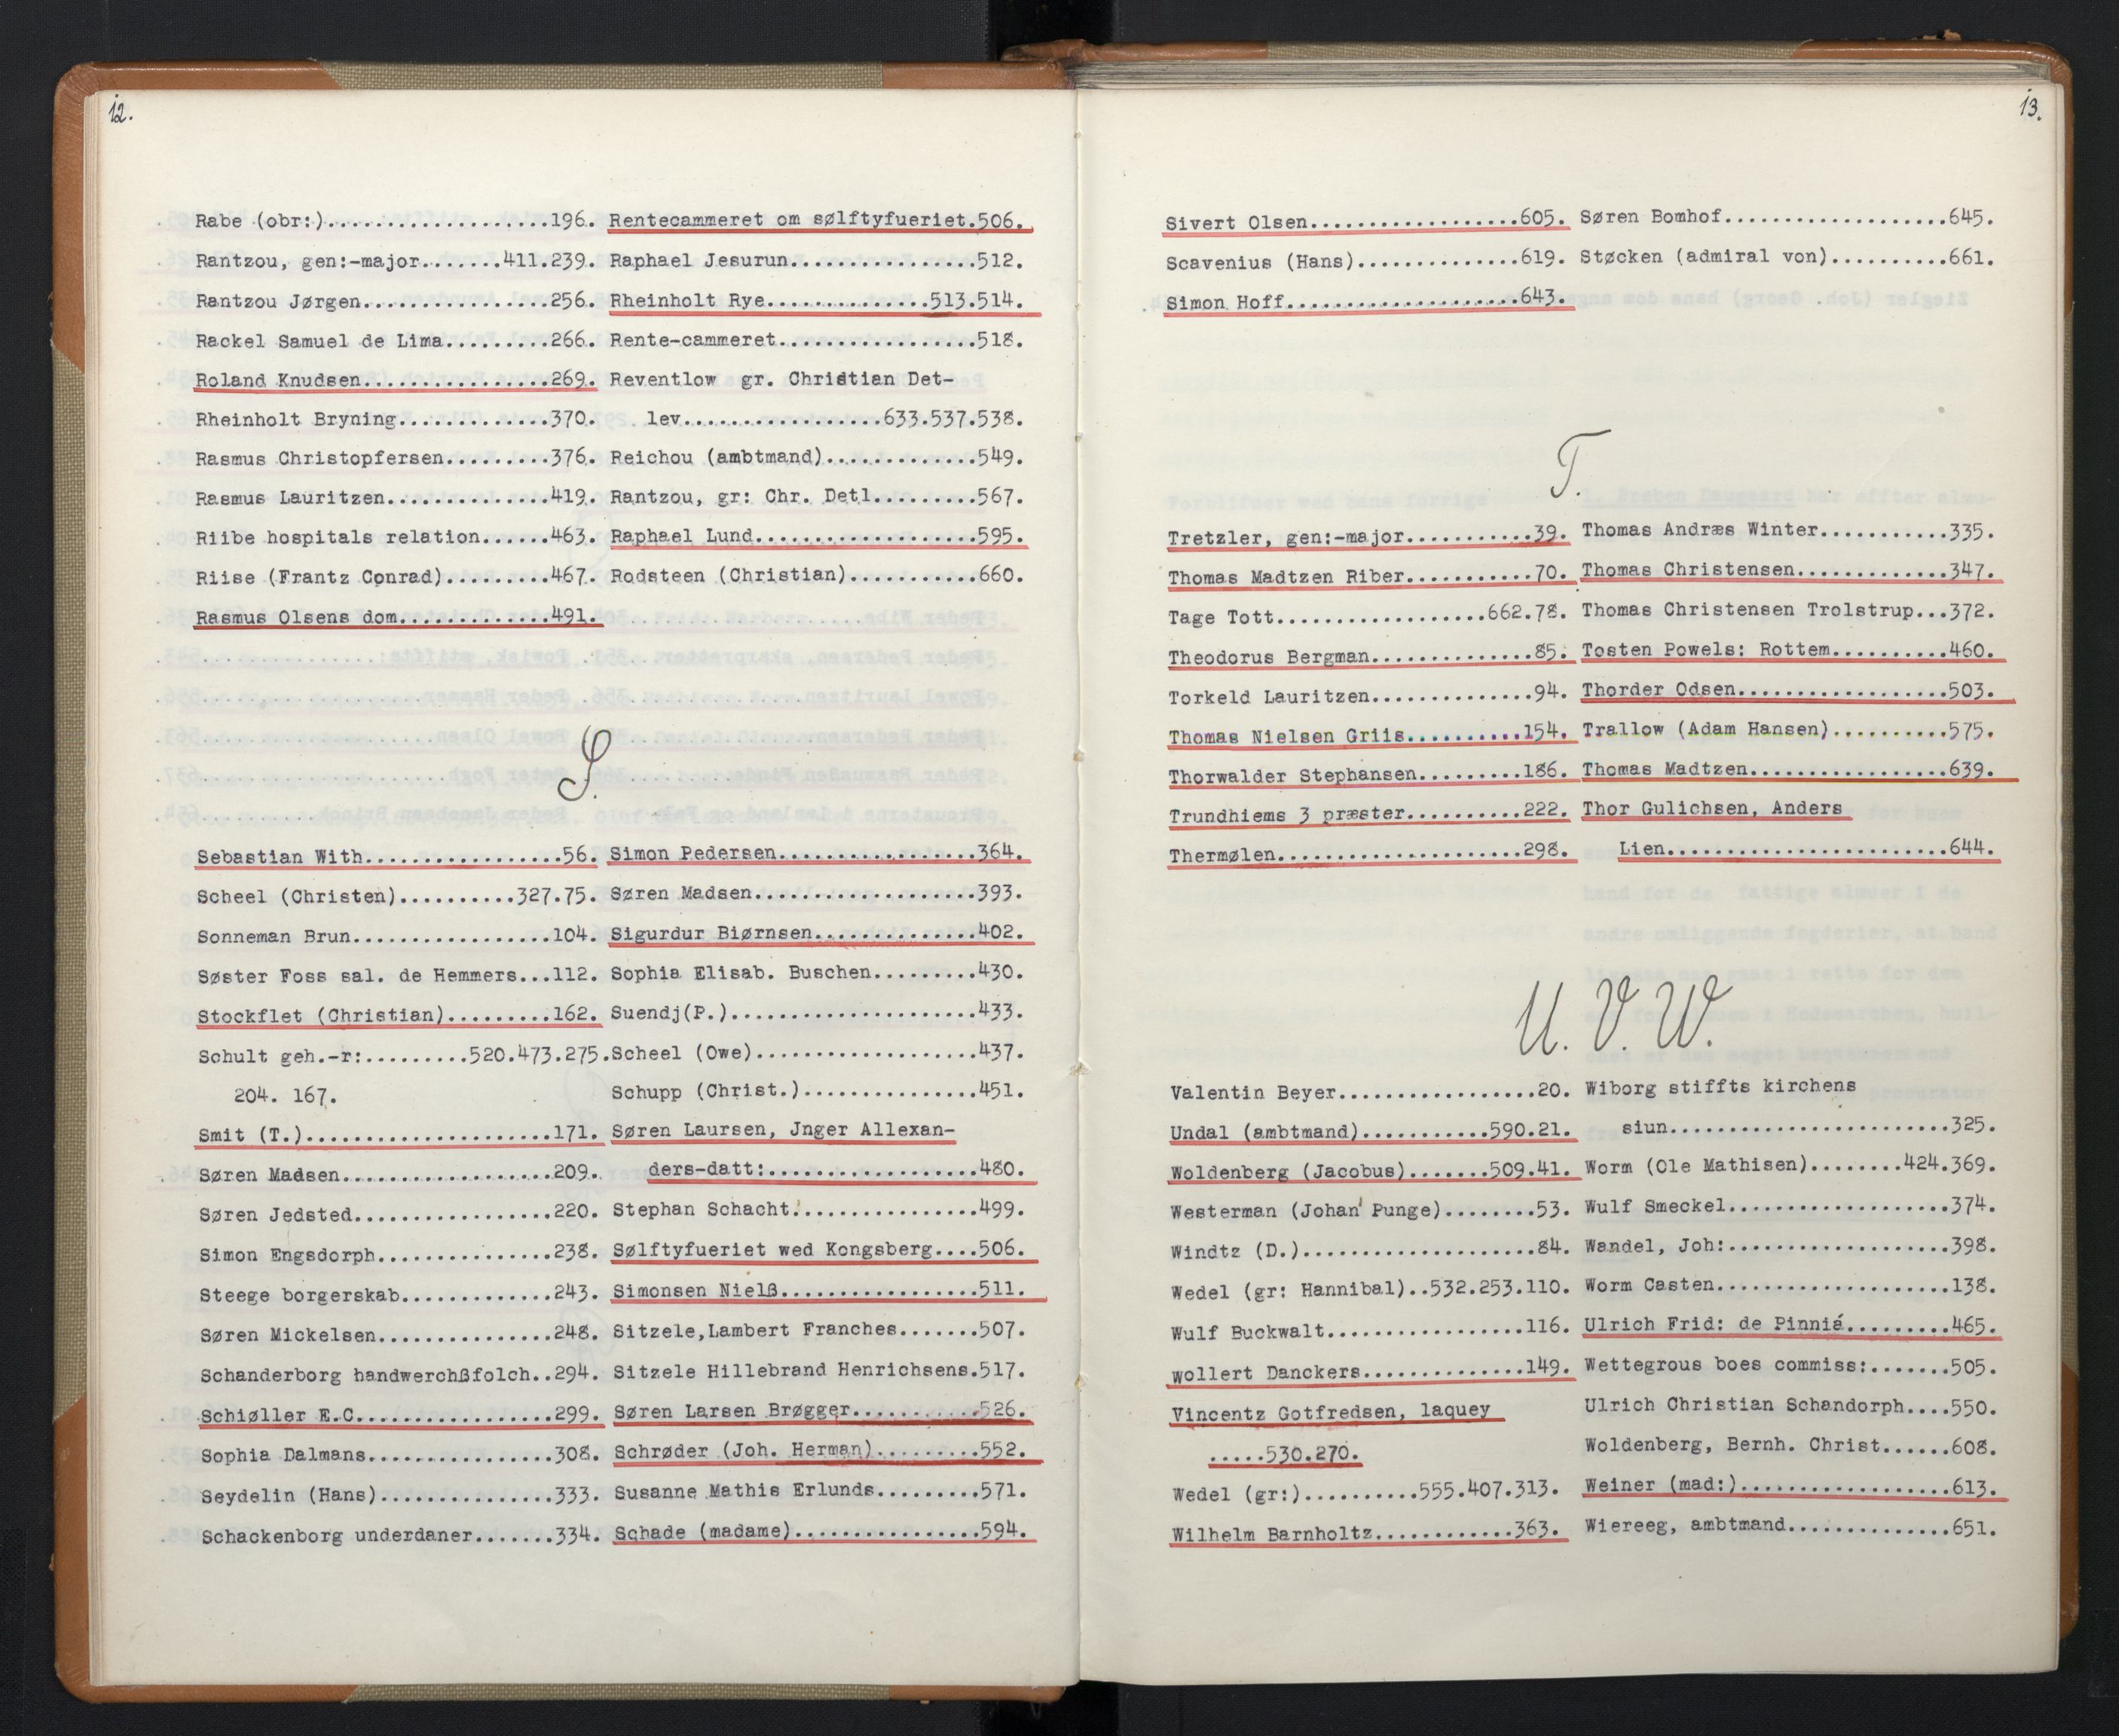 12.
Rabe (obr:)...................196.
Rantzou, gen:-major.......411.239.
Rantzou Jørgen................256.
Rackel Samuel de Lima.........266.
Roland Knudsen................269.
Rheinholt Bryning.............370.
Rasmus Christopfersen.........376.
Rasmus Lauritzen..............419.
Riibe hospitals relation......463.
Riise (Frantz Conrad).........467.
Rasmus Olsens dom.............491.
Rentecammeret om sølftyfueriet.506.
Raphael Jesurun................512.
Rheinholt Rye..............513.514.
Rente-cammeret.................518.
Reventlow gr. Christian Det-
lev.................633.537.538.
Reichou (ambtmand).............549.
Rantzou, gr: Chr. Detl.........567.
Raphael Lund...................595.
Rodsteen (Christian)...........660.
S.
Sebastian With.................56.
Scheel (Christen)..........327.75.
Sonneman Brun.................104.
Søster Foss sal. de Hemmers...112.
Stockflet (Christian).........162.
Schult geh.-r:.........520.473.275.
204. 167.
Smit (T.).....................171.
Søren Madsen..................209.
Søren Jedsted.................220.
Simon Engsdorph...............238.
Steege borgerskab.............243.
Søren Mickelsen...............248.
Schanderborg handwerchßfolch..294.
Schiøller E.C.................299.
Sophia Dalmans................308.
Seydelin (Hans)...............333.
Schackenborg underdaner.......334.
Simon Pedersen.................364.
Søren Madsen...................393.
Sigurdur Biørnsen..............402.
Sophia Elisab. Buschen.........430.
Suendj(P.).....................433.
Scheel (Owe)...................437.
Schupp (Christ.)...............451.
Søren Laursen, Jnger Allexan-
ders-datt:..................480.
Stephan Schacht................499.
Sølftyfueriet wed Kongsberg....506.
Simonsen Nielß.................511.
Sitzele,Lambert Franches.......507.
Sitzele Hillebrand Henrichsens.517.
Søren Larsen Brøgger...........526.
Schrøder (Joh. Herman).........552.
Susanne Mathis Erlunds.........571.
Schade (madame)................594.
13.
Sivert Olsen..................605.
Scavenius (Hans)..............619.
Simon Hoff....................643.
Søren Bomhof...................645.
Støcken (admiral von)..........661.
T.
Tretzler, gen:-major...........39.
Thomas Madtzen Riber...........70.
Tage Tott..................662.78.
Theodorus Bergman..............85.
Torkeld Lauritzen..............94.
Thomas Nielsen Griis..........154.
Thorwalder Stephansen.........186.
Trundhiems 3 præster..........222.
Thermølen.....................298.
Thomas Andræs Winter...........335.
Thomas Christensen.............347.
Thomas Christensen Trolstrup...372.
Tosten Powels: Rottem..........460.
Thorder Odsen..................503.
Trallow (Adam Hansen)..........575.
Thomas Madtzen.................639.
Thor Gulichsen, Anders
Lien........................644.
U. V. W.
Valentin Beyer.................20.
Undal (ambtmand)...........590.21.
Woldenberg (Jacobus).......509.41.
Westerman (Johan Punge)........53.
Windtz (D.)....................84.
Wedel (gr: Hannibal)..532.253.110.
Wulf Buckwalt.................116.
wollert Danckers..............149.
Vincentz Gotfredsen, laquey
.....530.270.
Wedel (gr:)..........555.407.313.
Wilhelm Barnholtz............363.
Wiborg stiffts kirchens
siun........................325.
Worm (Ole Mathisen)........424.369.
Wulf Smeckel...................374.
Wandel, Joh:...................398.
Worm Casten....................138.
Ulrich Frid: de Pinniá.........465.
Wettegrous boes commiss:.......505.
Ulrich Christian Schandorph....550.
Woldenberg, Bernh. Christ......608.
Weiner (mad:)..................613.
Wiereeg, ambtmand..............651.